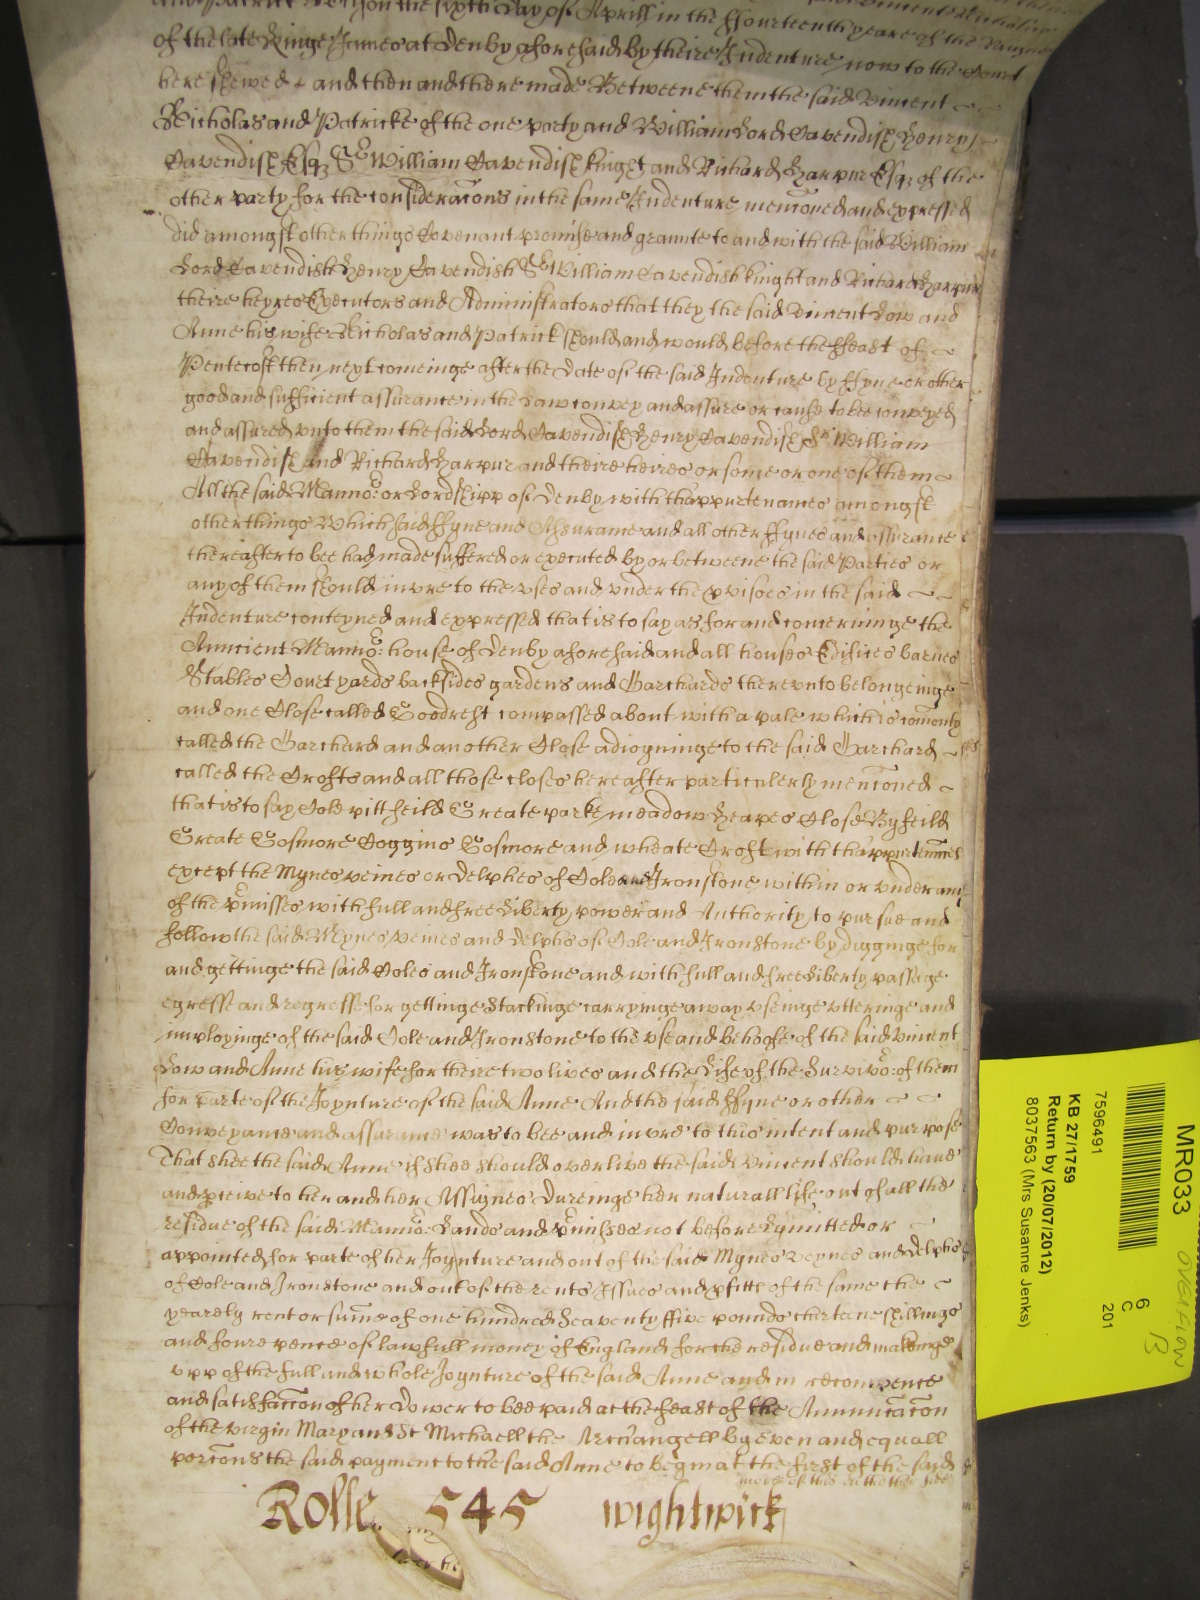 on the sixth day of Aprill in the ffourteenth yeare of the Raigne
of the late Kinge James at Denby aforesaid by theire Indenture now to the Court
here shewed and then and there made Betweene them the said Vincent
Nicholas and Patricke of the one party and William Lord Cavendish Henry
Cavendish Esqr Sr William Cavendish knight and Richard Harpur Esqr of the
other party for the consideracons in the same Indenture menconed and expressed
did amongst other things Covenant promise and graunte to and with the said William
Lord Cavendish Henry Cavendish Sr William Cavendish knight and Richard Harpur
theire heyres Executors and Administrators that they the said Vincent Low and
Anne his wife Nicholas and Patrick should and would before the ffeast of
Pentecost then next comeinge after the date of the said Indenture by ffyne or other
good and sufficient assurance in the Law convey and assure or cause to bee conveyed
and assured unto them the said Lord Cavendish Henry Cavendish Sr William
Cavendish and Richard Harpur and theire heires or some or one of them
All the said Manno: or Lordshipp of Denby with thappurtenances amongst
other things Which said ffyne and Assurance and all other ffynes and assurance
thereafter to bee had made suffered or executed by or betweene the said Parties or
any of them should inure to the uses and under the pvisoes in the said
Indenture conteyned and expressed that is to say as for and concerninge the
Auncient Manno: house of Denby aforesaid and all houses Edifices barnes
Stables Court yards backsides gardens and Oarchards thereunto belongeinge
and one Close called Goodrest compassed about with a pale which is comonly
called the Oarchard and another Close adioyninge to the said Oarchard
called the Crofts and all those closes hereafter particulerly menconed
that is to say Cole pitt feild Greate parke meadow Heapes Close Ryfeild
Greate Gosmore Coggins Gosmore and wheate Croft with thappurtennces
except the Mynes veines or Delphes of Cole and Ironstone within or under any
of the pmisses with full and free Liberty power and Authority to pursue and
follow the said Mynes veines and delphs of Cole and Ironstone by digginge for
and gettinge the said Coles and Ironstone and with full and free liberty passage
egresse and regresse for gettinge Stackinge carryinge away useinge utteringe and
imployinge of the said Cole and Ironstone to the use and behoofe of the said Vincent
Low and Anne his wife for there two lives and the Life of the Survivo: of them
for parte of the Joynture of the said Anne And the said ffyne or other
Conveyance and assurance was to bee and inure to this intent and purpose
That shee the said Anne if shee should overlive the said Vincent should have
and pceive to her and her Assignes dureinge her naturall life out of all the
residue of the said Manno: Lands and pmisses not before Lymitted or
appointed for parte of her Joynture and out of the said Mynes veynes and delphs
of Cole and Ironstone and out of the rents Issues and pfitts of the same the
yearely rent or sume of one hundred Seaventy ffive pounds thirteene shillings
and foure pence of lawfull money of England for the residue and makeinge
upp of the full and whole Joynture of the said Anne and in recompence
and satisfaccon of her Dower to bee paid at the feast of the Annunciacon
of the virgin Mary and St Michaell the Archangell by even and equall
porcons the said payment to the said Anne to begin at the first of the said
more of this on the other side
Rolle 545 wightwick
MR033
OVERFLOW
B
7596491
KB 27/1759
Return by (20/07/2012)
8037563 (Mrs Susanne Jenks)
6
C
201